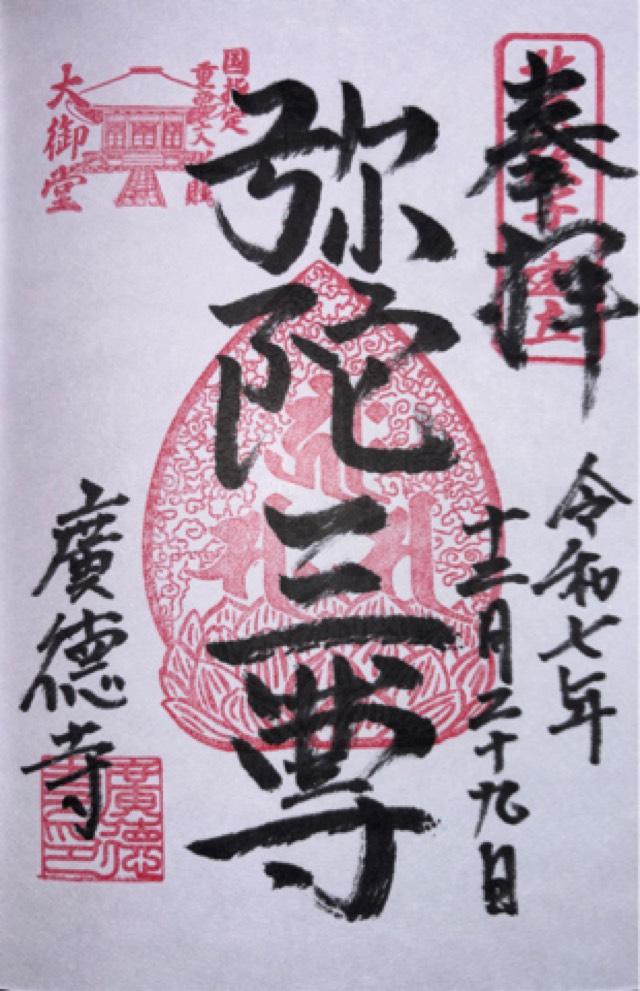 奉拝
令和七年
十二月二十九日
弥陀三尊
国指定
重要文化財
大御堂
廣徳寺
廣徳
寺印